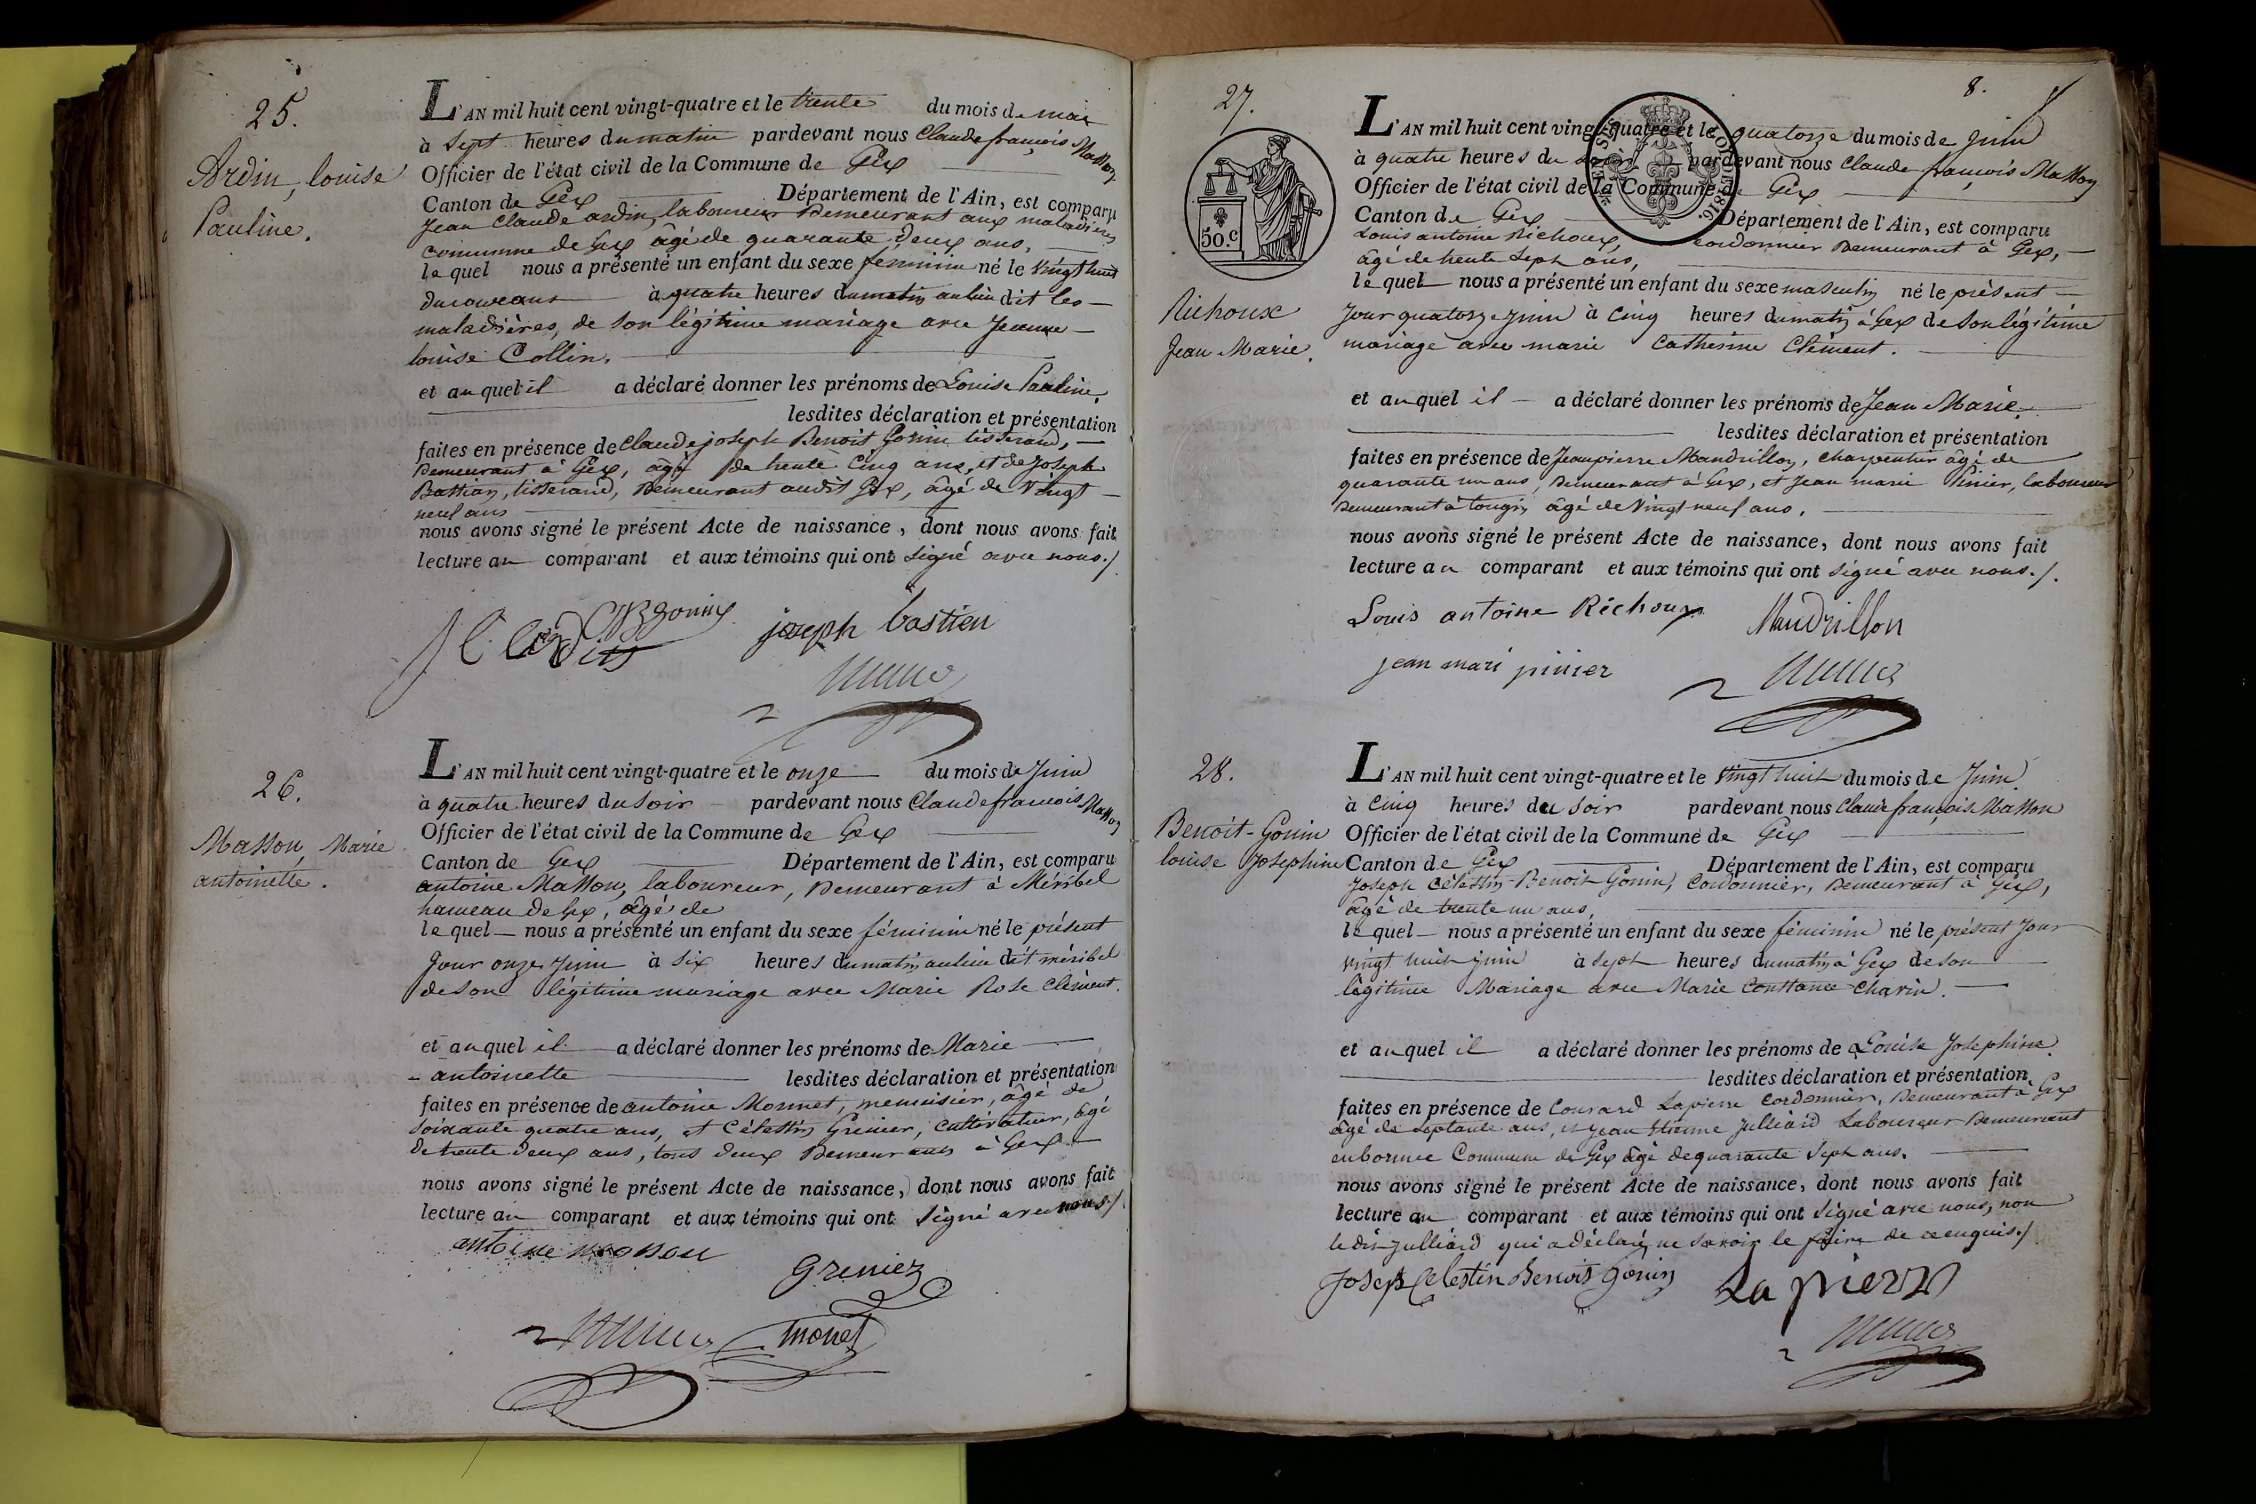 25.
Ardin, louise
Pauline.
L'AN mil huit cent vingt-quatre et le trente du mois de mai
à sept heures du matin pardevant nous Claude françois Masson
Officier de l'état civil de la Commune de Gex
Canton de Gex Département de l'Ain, est comparu
Jean Claude ardin, laboureur Demeurant aux maladières
commune de Gex âgé de quarante deux ans,
le quel nous a présenté un enfant du sexe feminin né le vingt huit
du courant à quatre heures du matin au lieu dit les
maladières, de son légitime mariage avec Jeanne
louise Collin.
et au quel il a déclaré donner les prénoms de Louise Pauline.
lesdites déclaration et présentation
faites en présence de Claude joseph Benoit Gonin tisserand,
Demeurant à Gex, âgé de trente cinq ans, et de Joseph
Bastian, tisserand, Demeurant audit Gex, âgé de vingt
neuf ans
nous avons signé le présent Acte de naissance, dont nous avons fait
lecture au comparant et aux témoins qui ont signé avec nous./
joseph bastien
26.
Masson, Marie
antoinette.
L'AN mil huit cent vingt-quatre et le onze du mois de Juin
à quatre heures du soir pardevant nous Claude francois Masson
Officier de l'état civil de la Commune de Gex
Canton de Gex Département de l'Ain, est comparu
antoine Masson, laboureur, Demeurant à Méribel
hameau de Gex, âgé de
le quel nous a présenté un enfant du sexe féminin né le présent
Jour onze Juin à six heures du matin au lieu dit méribel
de son légitime mariage avec Marie Rose Clément.
et au quel il a déclaré donner les prénoms de Marie
antoinette lesdites déclaration et présentation
faites en présence de antoine Monnet, menuisier, âgé de
soixante quatre ans, et Célestin Grenier, cultivateur, âgé
de trente deux ans, tous deux Demeurans à Gex
nous avons signé le présent Acte de naissance, dont nous avons fait
lecture au comparant et aux témoins qui ont signé avec nous./
antoine masson
Greniez
monet
8.
27.
50.c
TIMBRE ROYAL
LOI DE 1816.
Richoux
Jean Marie.
L'AN mil huit cent vingt-quatre et le quatorze du mois de Juin
à quatre heures du soir pardevant nous Claude françois Masson
Officier de l'état civil de la Commune de Gex
Canton de Gex Département de l'Ain, est comparu
Louis antoine Richoux, cordonnier Demeurant à Gex,
âgé de trente sept ans,
le quel nous a présenté un enfant du sexe masculin né le présent
Jour quatorze Juin à Cinq heures du matin à Gex de son légitime
mariage avec marie Catherine Clément.
et au quel il a déclaré donner les prénoms de Jean Marie.
lesdites déclaration et présentation
faites en présence de Jean pierre Mandrillon, charpentier âgé de
quarante un ans, Demeurant à Gex, et Jean marie Pinier, laboureur
Demeurant à tougin âgé de Vingt neuf ans.
nous avons signé le présent Acte de naissance, dont nous avons fait
lecture au comparant et aux témoins qui ont signé avec nous./.
Louis antoine Richoux
Mandrillon
jean mari pinier
28.
Benoit-Gonin
louise Josephine
L'AN mil huit cent vingt-quatre et le vingt huit du mois de Juin
à Cinq heures du soir pardevant nous Claude françois Masson
Officier de l'état civil de la Commune de Gex
Canton de Gex Département de l'Ain, est comparu
Joseph Célestin-Benoit Gonin, Cordonnier, Demeurant à Gex,
âgé de trente un ans,
le quel nous a présenté un enfant du sexe féminin né le présent Jour
vingt huit juin à sept heures du matin à Gex de son
légitime Mariage avec Marie Constance Charin.
et au quel il a déclaré donner les prénoms de Louise Josephine.
lesdites déclaration et présentation
faites en présence de Conrard Lapierre Cordonnier, Demeurant à Gex
âgé de septante ans, et Jean Etienne Julliard Laboureur Demeurant
enbornee Commune de Gex âgé de quarante sept ans.
nous avons signé le présent Acte de naissance, dont nous avons fait
lecture au comparant et aux témoins qui ont signé avec nous, non
le dit Julliard qui a déclaré ne savoir le faire de ce enquis./
Joseph Celestin Benoit gonin
La pierre